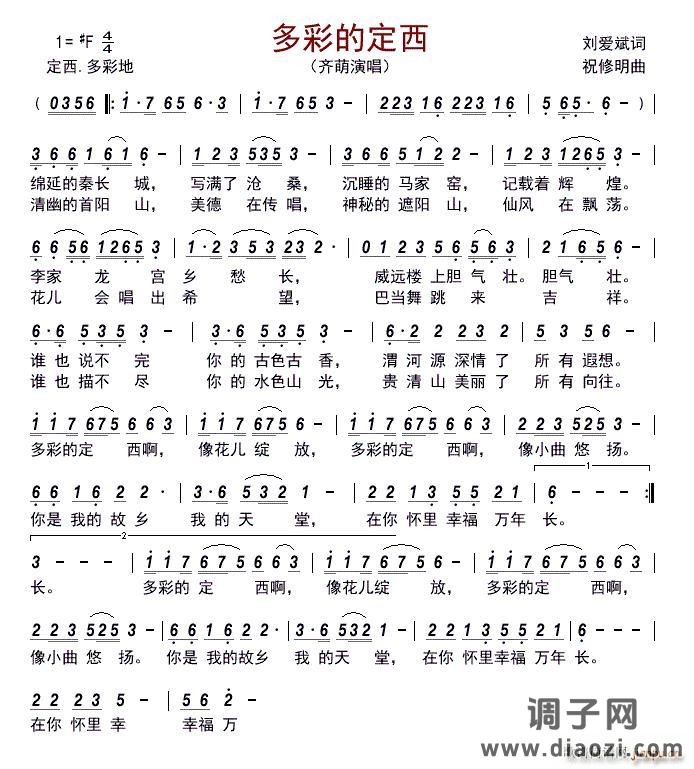 多彩的定西
1=#F 4/4
刘爱斌词
定西.多彩地
（齐萌演唱）
祝修明曲
( 0356 ‖: 1·7 65 6·3 | 1·7 65 3 - | 223 16 223 16 | 5 65· 6· ) |
3 6 6 1 61 6 - | 1 2 3 535 3 - | 3 6 6 5 12 2 - | 1 2 3 1265 3 - |
绵延的秦长 城， 写满了 沧 桑， 沉睡的 马家 窑， 记载着 辉 煌。
清幽的首阳 山， 美德 在传 唱， 神秘的 遮阳 山， 仙风 在 飘 荡。
6 6 56 1265 3 | 1·2 353 232 - | 0 1 2 3 2 5 6 563 | 5 - - - |
李家 龙 宫 乡 愁 长， 威远楼 上胆 气 壮。胆气 壮。
花儿 会 唱 出 希 望， 巴当舞 跳 来 吉 祥。
6·6 5 353 - | 3·6 6535 6 - | 6·2 2 3532 | 3 5 3 2 3 - |
谁 也 说不 完 你 的 古色古 香， 渭 河 源 深情 了 所 有 遐想。
谁 也 描不 尽 你 的 水色山 光， 贵 清 山 美丽 了 所 有 向往。
1 1 7 675 6 6 3 | 1 1 7 675 6 - | 1 1 7 675 6 6 3 | 2 2 3 525 3 - |
多彩的 定 西啊， 像花儿 绽 放， 多彩的 定 西啊， 像小曲 悠 扬。
6 6 1 6 2· - | 3·6 532 1 - | 2 2 1 3 5 5 2 1 | 6 - - - :‖
你是 我的 故 乡 我 的 天 堂， 在你 怀里 幸福 万年 长。
3 - - - | 1 1 7 675 6 6 3 | 1 1 7 675 6 - | 1 1 7 675 6 6 3 |
长。 多彩的 定 西啊， 像花儿绽 放， 多彩的 定 西啊，
2 2 3 525 3 - | 6 6 1 6 2 - | 3·6 532 1 - | 2 2 1 3 5 5 2 1 | 6 - - - |
像小曲 悠 扬。 你是 我的故乡 我 的天 堂， 在你 怀里幸福 万年 长。
2 2 2 2 3 - | 5 6 2 -
在你 怀里 幸 幸福 万
调子网
www.diaozi.com